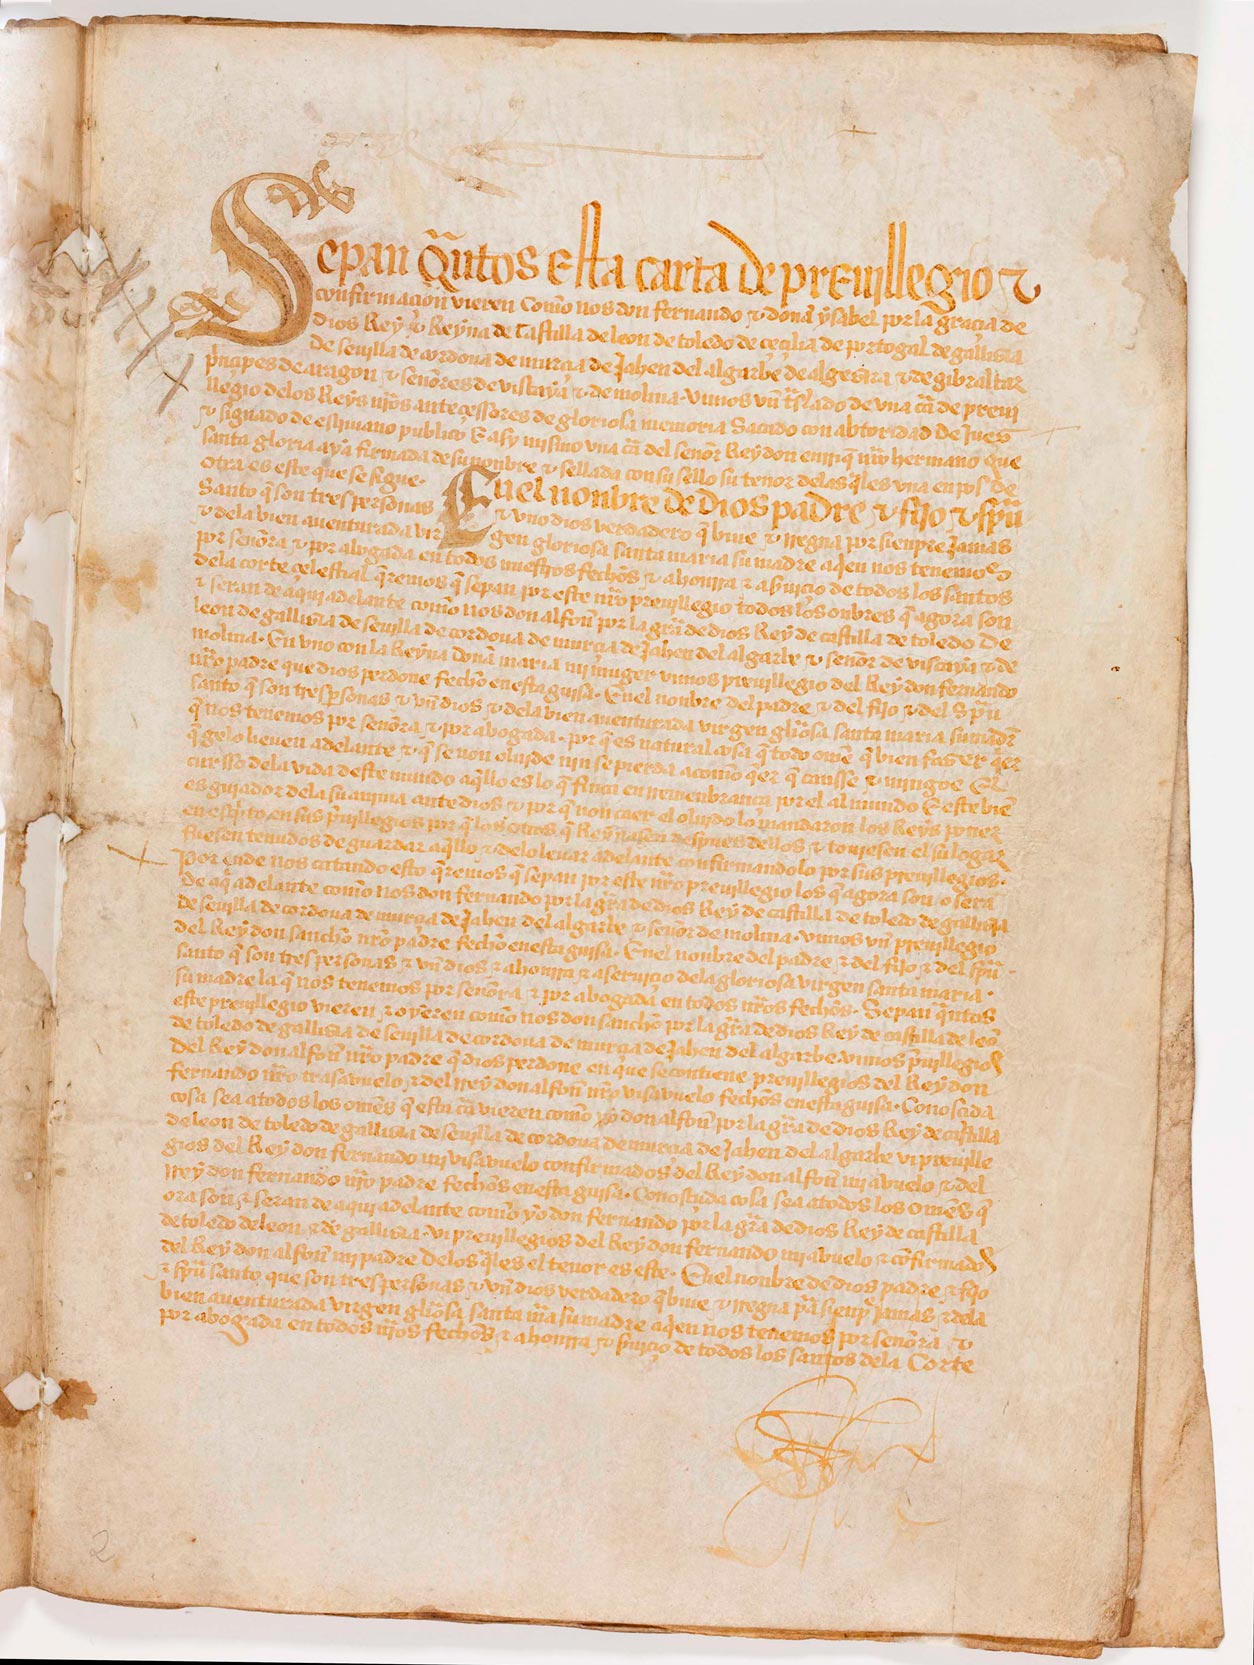 Sepan q̃ntos esta carta de preuillegio ⁊
confirmaçion vieren Com̃o nos don fernando ⁊ doña ysabel por la graçia de
dios Rey ⁊ Reyna de Castilla de leon de toledo de çeçilia de portogal de gallisia
de seuilla de cordoua de murcia de Jahen del algarbe de algesira ⁊ de gibraltar
prinçipes de aragon ⁊ señores de viscaya ⁊ de molina. vimos vn tr̃slado de vna cã de preui
llegio delos Reys nr̃os anteçessores de gloriosa memoria Sacado con abtoridad de Juez
⁊ signado de escriuano publico E asy mismo vna cã del señor Rey don enrriq̃ nr̃o hermano que
santa gloria aya firmada de su nonbre ⁊ sellada con su sello su tenor delas q̃les vna en pos de
otra es este que se sigue. En el nonbre de dios padre ⁊ fijo ⁊ spũ
Santo q̃ son tres personas ⁊ vno dios verdadero q̃ biue ⁊ rregna por sienpre Jamas
⁊ dela bien auenturada virgen gloriosa santa maria su madre aqien nos tenemos
por señora ⁊ por abogada en todos nuestros fechos ⁊ ahonrra ⁊ a seruiçio de todos los santos
dela corte çelestial q̃remos q̃ sepan por este nr̃o preuillegio todos los onbres q̃ agora son
⁊ seran de aqui adelante com̃o nos don alfoñ por la grã de dios Rey de castilla de toledo de
leon de gallisia de seuilla de cordoua de murçia de Jahen del algarbe ⁊ señor de viscaya ⁊ de
molina. En vno con la Reyna doña maria mi muger vimos preuillegio del Rey don fernando
nr̃o padre que dios perdone fecho en esta guisa. En el nonbre del padre ⁊ del fijo ⁊ del Spũ
santo q̃ son tres personas ⁊ vn dios ⁊ dela bien auenturada virgen glr̃iosa santa maria su madr̃
q̃ nos tenemos por señora ⁊ por abogada. por q̃ es natural cosa q̃ todo ome q̃ bien faser q̃er
q̃ gelo lieuen adelante ⁊ q̃ se non oluide nin se pierda a com̃o q̃er q̃ cansse ⁊ mingue El
cursso dela vida deste mundo aq̃llo es lo q̃ finca en rremenbrança por el al mundo E este bien
es guiador dela su anima ante dios ⁊ por q̃ non caer el oluido lo mandaron los Reys poner
en esc̃pto en sus preuillegios por q̃ los otros q̃ Reynasen despues dellos ⁊ touiesen el su logar
fuesen tenudos de guardar aq̃llo ⁊ delo leuar adelante confirmandolo por sus preuillegios.
Por ende nos catando esto q̃remos q̃ sepan por este nr̃o preuillegio los q̃ agora son o sera
de aq̃ adelante com̃o nos don fernando por la grã de dios Rey de castilla de toledo de gallisia
de seuilla de cordoua de murçia de Jahen del algarbe ⁊ señor de molina. vimos vn preuillegio
del Rey don sancho nr̃o padre fecho en esta guisa. En el nonbre del padre ⁊ del fijo ⁊ del spũ
santo q̃ son tres personas ⁊ vn dios ⁊ ahonrra ⁊ a seruiçio dela gloriosa virgen santa maria.
su madre la q̃ nos tenemos por señora ⁊ por abogada en todos nr̃os fechos. Sepan q̃ntos
este preuillegio vieren ⁊ oyeren com̃o nos don sancho por la grã de dios Rey de castilla de leõ
de toledo de gallisia de seuilla de cordoua de murçia de Jahen del algarbe vimos preuillegio
del Rey don alfoñ nr̃o padre q̃ dios perdone en que se contiene preuillegios del Rey don
fernando nr̃o trasauuelo ⁊ del rrey don alfoñ nr̃o visauuelo fechos en esta guisa. Conosçida
cosa sea a todos los omes q̃ esta cã vieren com̃o yo don alfoñ por la grã de dios Rey de castilla
de leon de toledo de gallisia de seuilla de cordoua de murcia de Jahen del algarbe vi preuille
gios del Rey don fernando mi visauuelo confirmados del Rey don alfoñ mi abuelo ⁊ del
rrey don fernando mjo padre fechos en esta guisa. Conosçida cosa sea a todos los omes q̃
ora son ⁊ seran de aqui adelante com̃o yo don fernando por la grã de dios Rey de castilla
de toledo de leon ⁊ de gallisia. vi preuillegios del Rey don fernando mi abuelo ⁊ confirmados
del Rey don alfoñ mi padre delos q̃les el tenor es este. En el nonbre de dios padre ⁊ fijo
⁊ spũ santo que son tres personas ⁊ vn dios verdadero q̃ biue ⁊ rregna p̃a sienp̃ Jamas ⁊ dela
bien auenturada virgen glr̃iosa santa mr̃ia su madre aqien nos tenemos por señora ⁊
por abogada en todos nr̃os fechos ⁊ ahonrra ⁊ seruiçio de todos los santos dela Corte
2